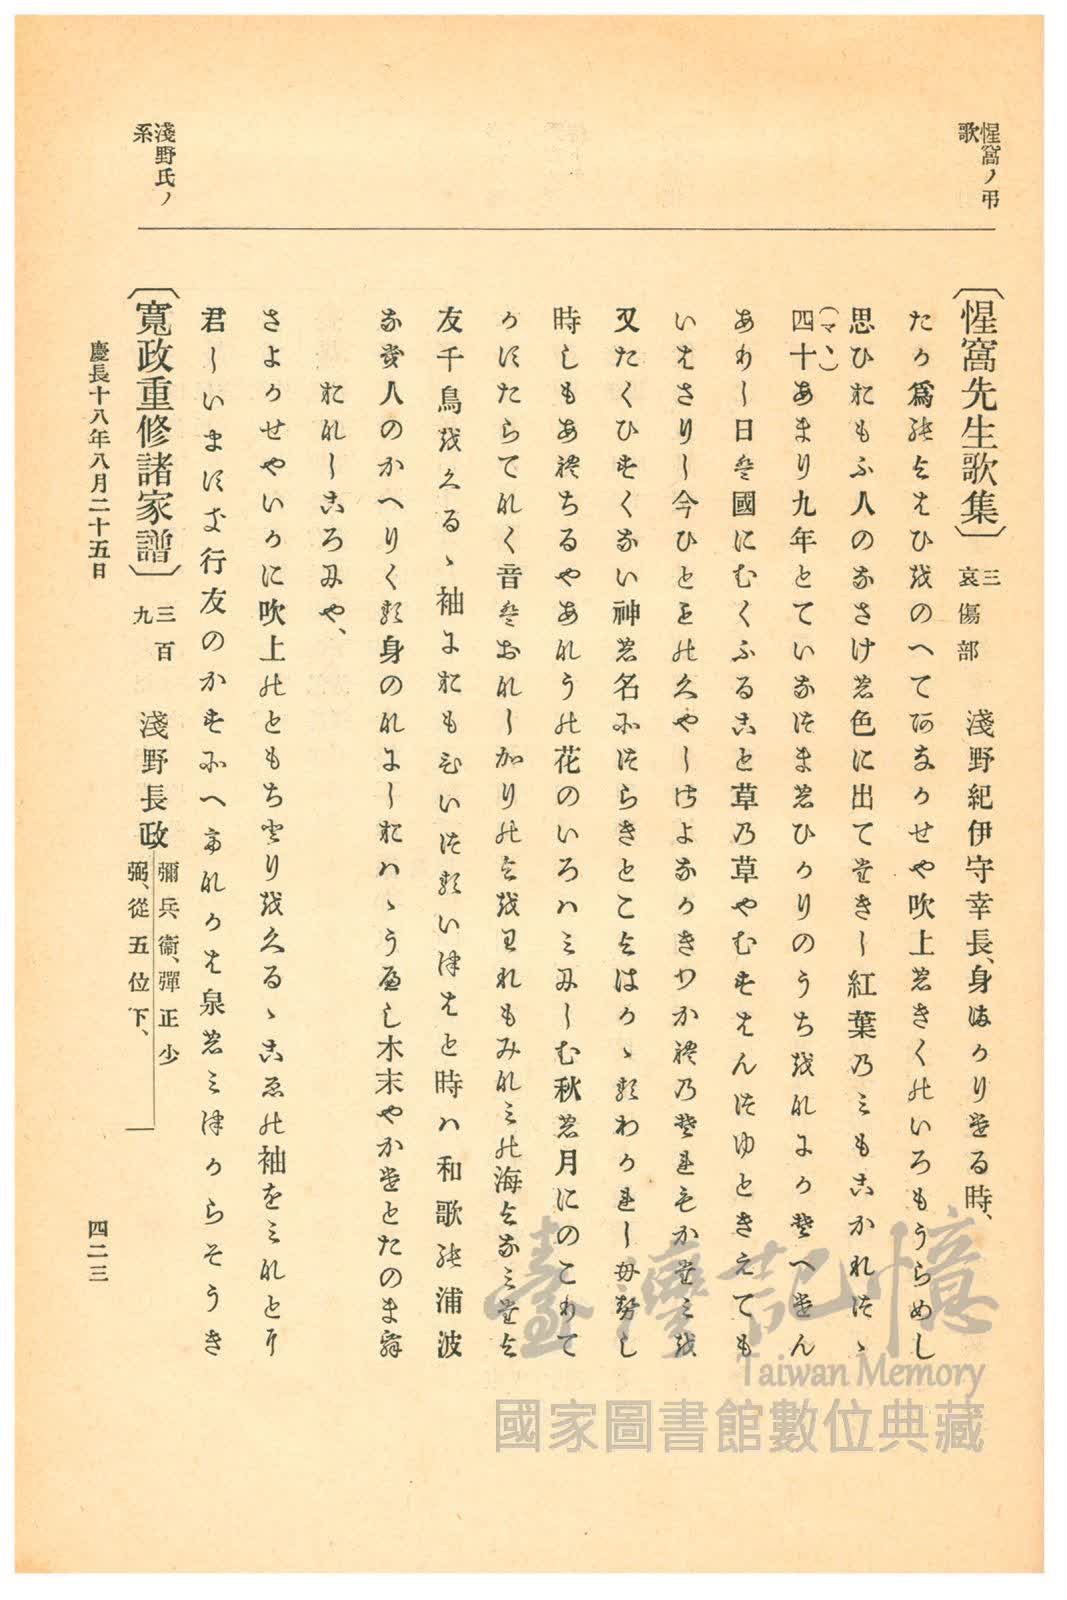 惺窩ノ弔
歌
〔惺窩先生歌集〕三哀傷部 淺野紀伊守幸長、身まかりける時、
たか爲にとよはひをのへてあなかせや吹上のきくのいろもうらめし
思ひおもふ人のなさけの色に出てたきし紅葉のミもこかれつゝ
(マヽ)
四十あまり九年とていなつまのひかりのうちをなにかそへけん
ありし日は國にむくふること草の草やむすはん つゆときえても
いはさりし今ひとたの久やしけよなかきわか禮のそれもかたミを
又たくひすくない神の名につらきとこよはかゝるわかれし
時しもあれちるやあれうの花のいろハミにしむ秋の月にのこりて
かにたらてなく音はおなしかりのよをわれもみなミの海よなミたよ
友千鳥をくる、袖におもひいつるいにはと時ハ和歌の浦波
な人のかへりくる身のなにしおハゝうへし木末やかけとたのまむ
おなしころにや、
さよかせやいかに吹上のともちとりをくるゝこゑの袖をミなとに
君しいます行友のかすにへなかは泉のミつからそうき
淺野氏ノ
系
〔寛政重修諸家譜〕三百九 淺野長政 彌兵衞、彈正少弼、從五位下、
慶長十八年八月二十五日
四二三
臺灣記憶
Taiwan Memory
國家圖書館數位典藏